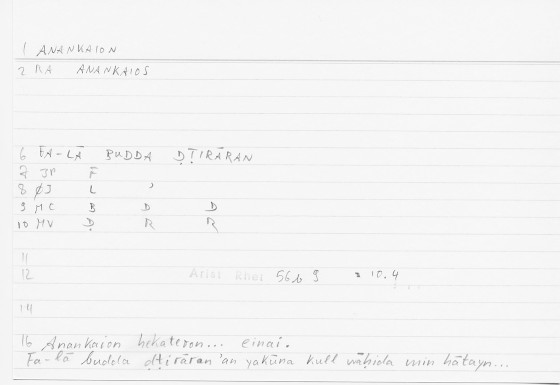 1 ANANKAION
2 RA ANANKAIOS
6 FA-LĀ BUDDA ḌṬIRĀRAN
7 JP F̄
8 ØJ L ʾ
9 MC B D D
10 MV Ḍ R R
11
12 Arist Rhet 56b 9 = 10.4
14
16 Anankaion hekateron... einai.
Fa-lā budda ḍṭirāran 'an yakūna kull wāḥida min hātayn...